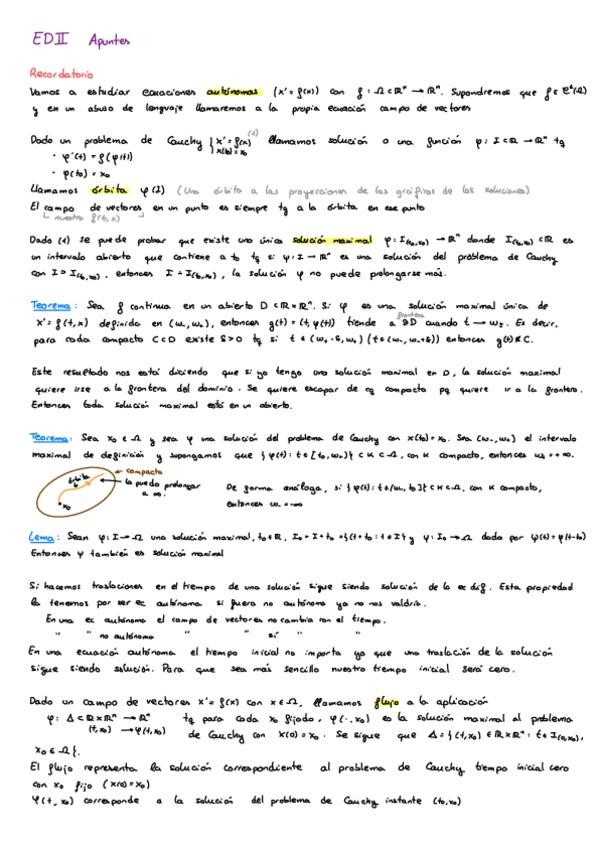 EDII Apuntes
Recordatorio
Vamos a estudiar ecuaciones autónomas (x' = f(x)) con f: Ω ⊂ ℝⁿ → ℝⁿ. Supondremos que f ∈ C¹(Ω)
y en un abuso de lenguaje llamaremos a la propia ecuación campo de vectores
Dado un problema de Cauchy { x' = f(x) x(t₀) = x₀ (1) llamamos solución a una función φ: I ⊂ ℝ → ℝⁿ tq
· φ'(t) = f(φ(t))
· φ(t₀) = x₀
Llamamos órbita φ(I) (Una órbita a las proyecciones de las gráficas de las soluciones)
El campo de vectores en un punto es siempre tg a la órbita en ese punto
nuestro f(t,x)
Dado (1) se puede probar que existe una única solución maximal φ: I(t₀,x₀) → ℝⁿ donde I(t₀,x₀) ⊂ ℝ es
un intervalo abierto que contiene a t₀ tq si ψ: I → ℝⁿ es una solución del problema de Cauchy
con I ⊃ I(t₀,x₀), entonces I = I(t₀,x₀), la solución φ no puede prolongarse más.
Teorema: Sea f continua en un abierto D ⊂ ℝ×ℝⁿ. Si φ es una solución maximal única de
x' = f(t,x) definida en (ω₋, ω₊), entonces g(t) = (t, φ(t)) tiende a ∂D cuando t → ω±. Es decir,
frontera
para cada compacto C ⊂ D existe δ > 0 tq si t ∉ (ω₋+δ, ω₊-δ) entonces g(t) ∉ C.
Este resultado nos está diciendo que si yo tengo una solución maximal en D, la solución maximal
quiere irse a la frontera del dominio. Se quiere escapar de cq compacto pq quiere ir a la frontera.
Entonces toda solución maximal está en un abierto.
Teorema: Sea x₀ ∈ Ω y sea φ una solución del problema de Cauchy con x(t₀) = x₀. Sea (ω₋, ω₊) el intervalo
maximal de definición y supongamos que {φ(t): t ∈ [t₀, ω₊)} ⊂ K ⊂ Ω, con K compacto, entonces ω₊ = +∞.
compacto
órbita
la puedo prolongar
a ∞.
x₀
De forma análoga, si {φ(t): t ∈ (ω₋, t₀]} ⊂ K ⊂ Ω, con K compacto,
entonces ω₋ = -∞
Lema: Sean φ: I → Ω una solución maximal, t₀ ∈ ℝ, I₀ = I + t₀ = {t + t₀ : t ∈ I} y ψ: I₀ → Ω dada por ψ(t) = φ(t-t₀)
Entonces ψ también es solución maximal
Si hacemos traslaciones en el tiempo de una solución sigue siendo solución de la ec dif. Esta propiedad
la tenemos por ser ec autónoma si fuera no autónoma ya no nos valdría.
En una ec autónoma el campo de vectores no cambia con el tiempo.
" " no autónoma " " " sí " " "
En una ecuación autónoma el tiempo inicial no importa ya que una traslación de la solución
sigue siendo solución. Para que sea más sencillo nuestro tiempo inicial será cero.
Dado un campo de vectores x' = f(x) con x ∈ Ω, llamamos flujo a la aplicación
φ: Δ ⊂ ℝ×ℝⁿ → ℝⁿ tq para cada x₀ fijado, φ(·, x₀) es la solución maximal al problema
(t, x₀) → φ(t, x₀) de Cauchy con x(0) = x₀. Se sigue que Δ = {(t, x₀) ∈ ℝ×ℝⁿ : t ∈ I(0,x₀),
x₀ ∈ Ω}.
El flujo representa la solución correspondiente al problema de Cauchy tiempo inicial cero
con x₀ fijo (x(0) = x₀)
φ(t, x₀) corresponde a la solución del problema de Cauchy instante (t₀, x₀)